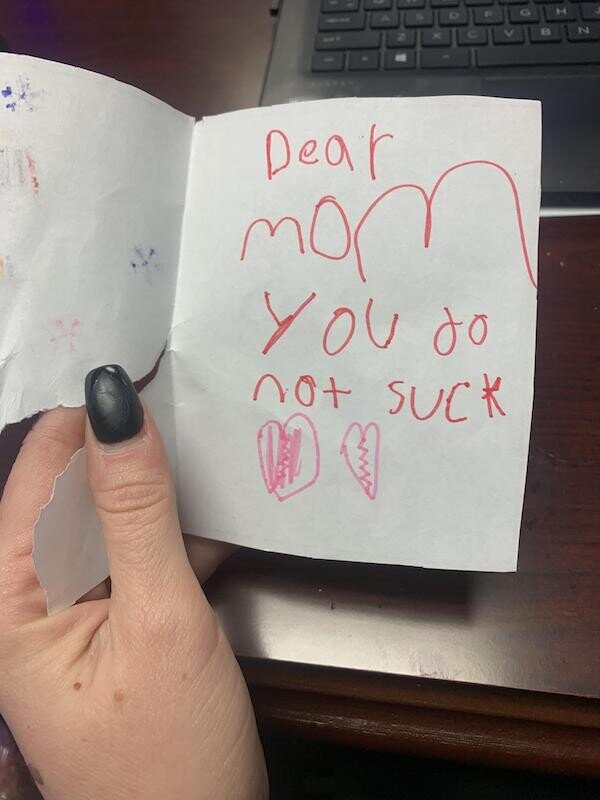 Dear
mom
you do
not suck
A S D F G H J K
Z X C V B N